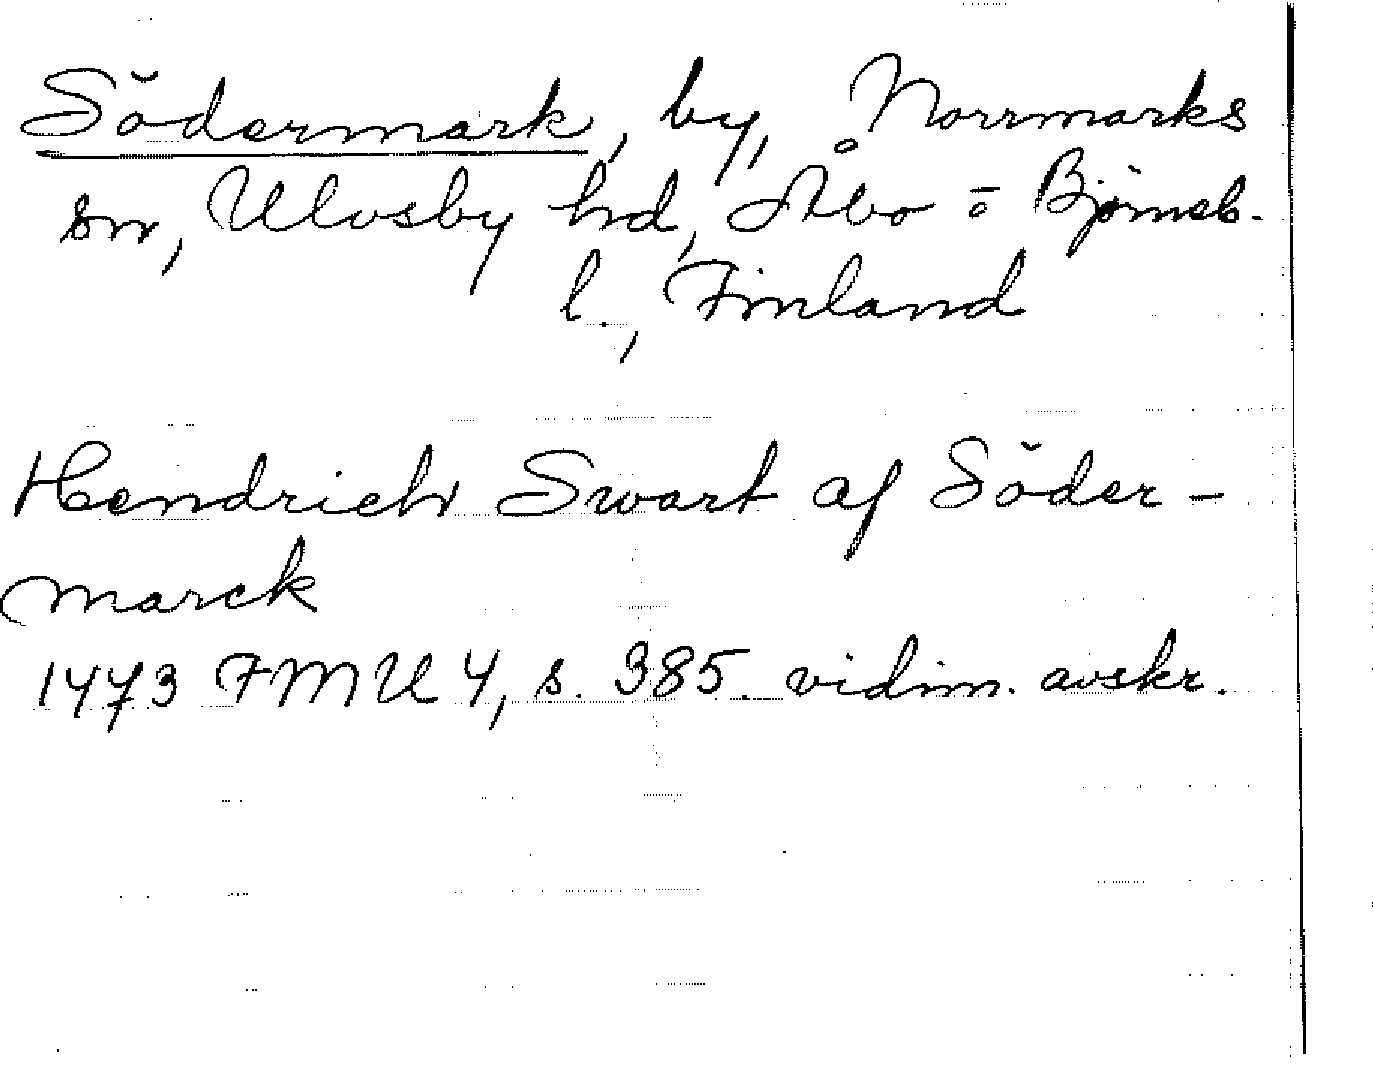 Södermark, by, Norrmarks
sn, Ulvsby hd, Åbo o Björneb.
l., Finland
Hendrich Swart af Söder-
marck
1473 FMU 4, s. 385. vidim. avskr.